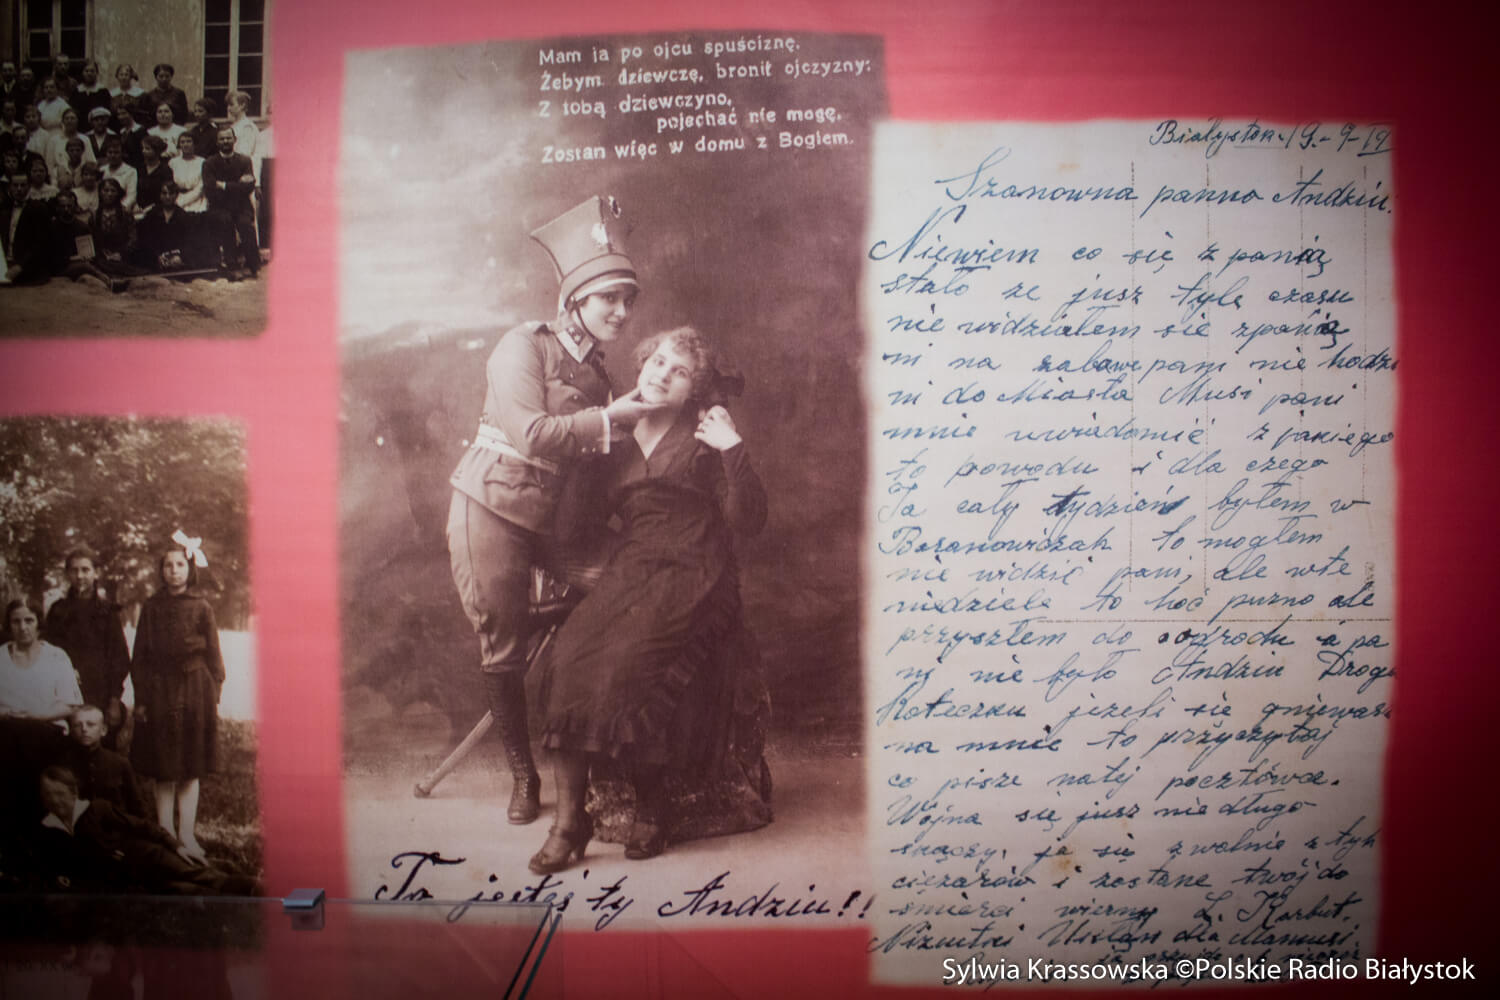 Mam ja po ojcu spuściznę,
Żebym dziewczę, bronił ojczyzny:
Z tobą dziewczyno,
pojechać nie mogę,
Zostan więc w domu z Bogiem.
To jesteś ty Andziu!!
Białystok. 19.-9-19
Szanowna panno Andziu.
Niewiem co się z panią
stało ze jusz tyle czasu
nie widziałem sie zpanią
ni na zabawe pani nie hodzi
ni do Miasta Musi pani
mnie uwiadomić z jakiego
to powodu i dla czego
Ja cały tydzień byłem w
Baranowiczah to mogłem
nie widzić pani, ale wte
niedziele to hoć puzno ale
przyszłem do ogrodu a pa
ni nie było Andziu Droga
Koteczku jeżeli się gniewasz
na mnie to przyczytaj
co pisze natej pocztówce.
Wojna się jusz niedługo
skączy. ja się zwolnie z tyh
cięzarów i zostane twój do
śmierci wierny L. Korbut.
Nizutki Ukłon dla Mamusi
Sylwia Krassowska ©Polskie Radio Białystok